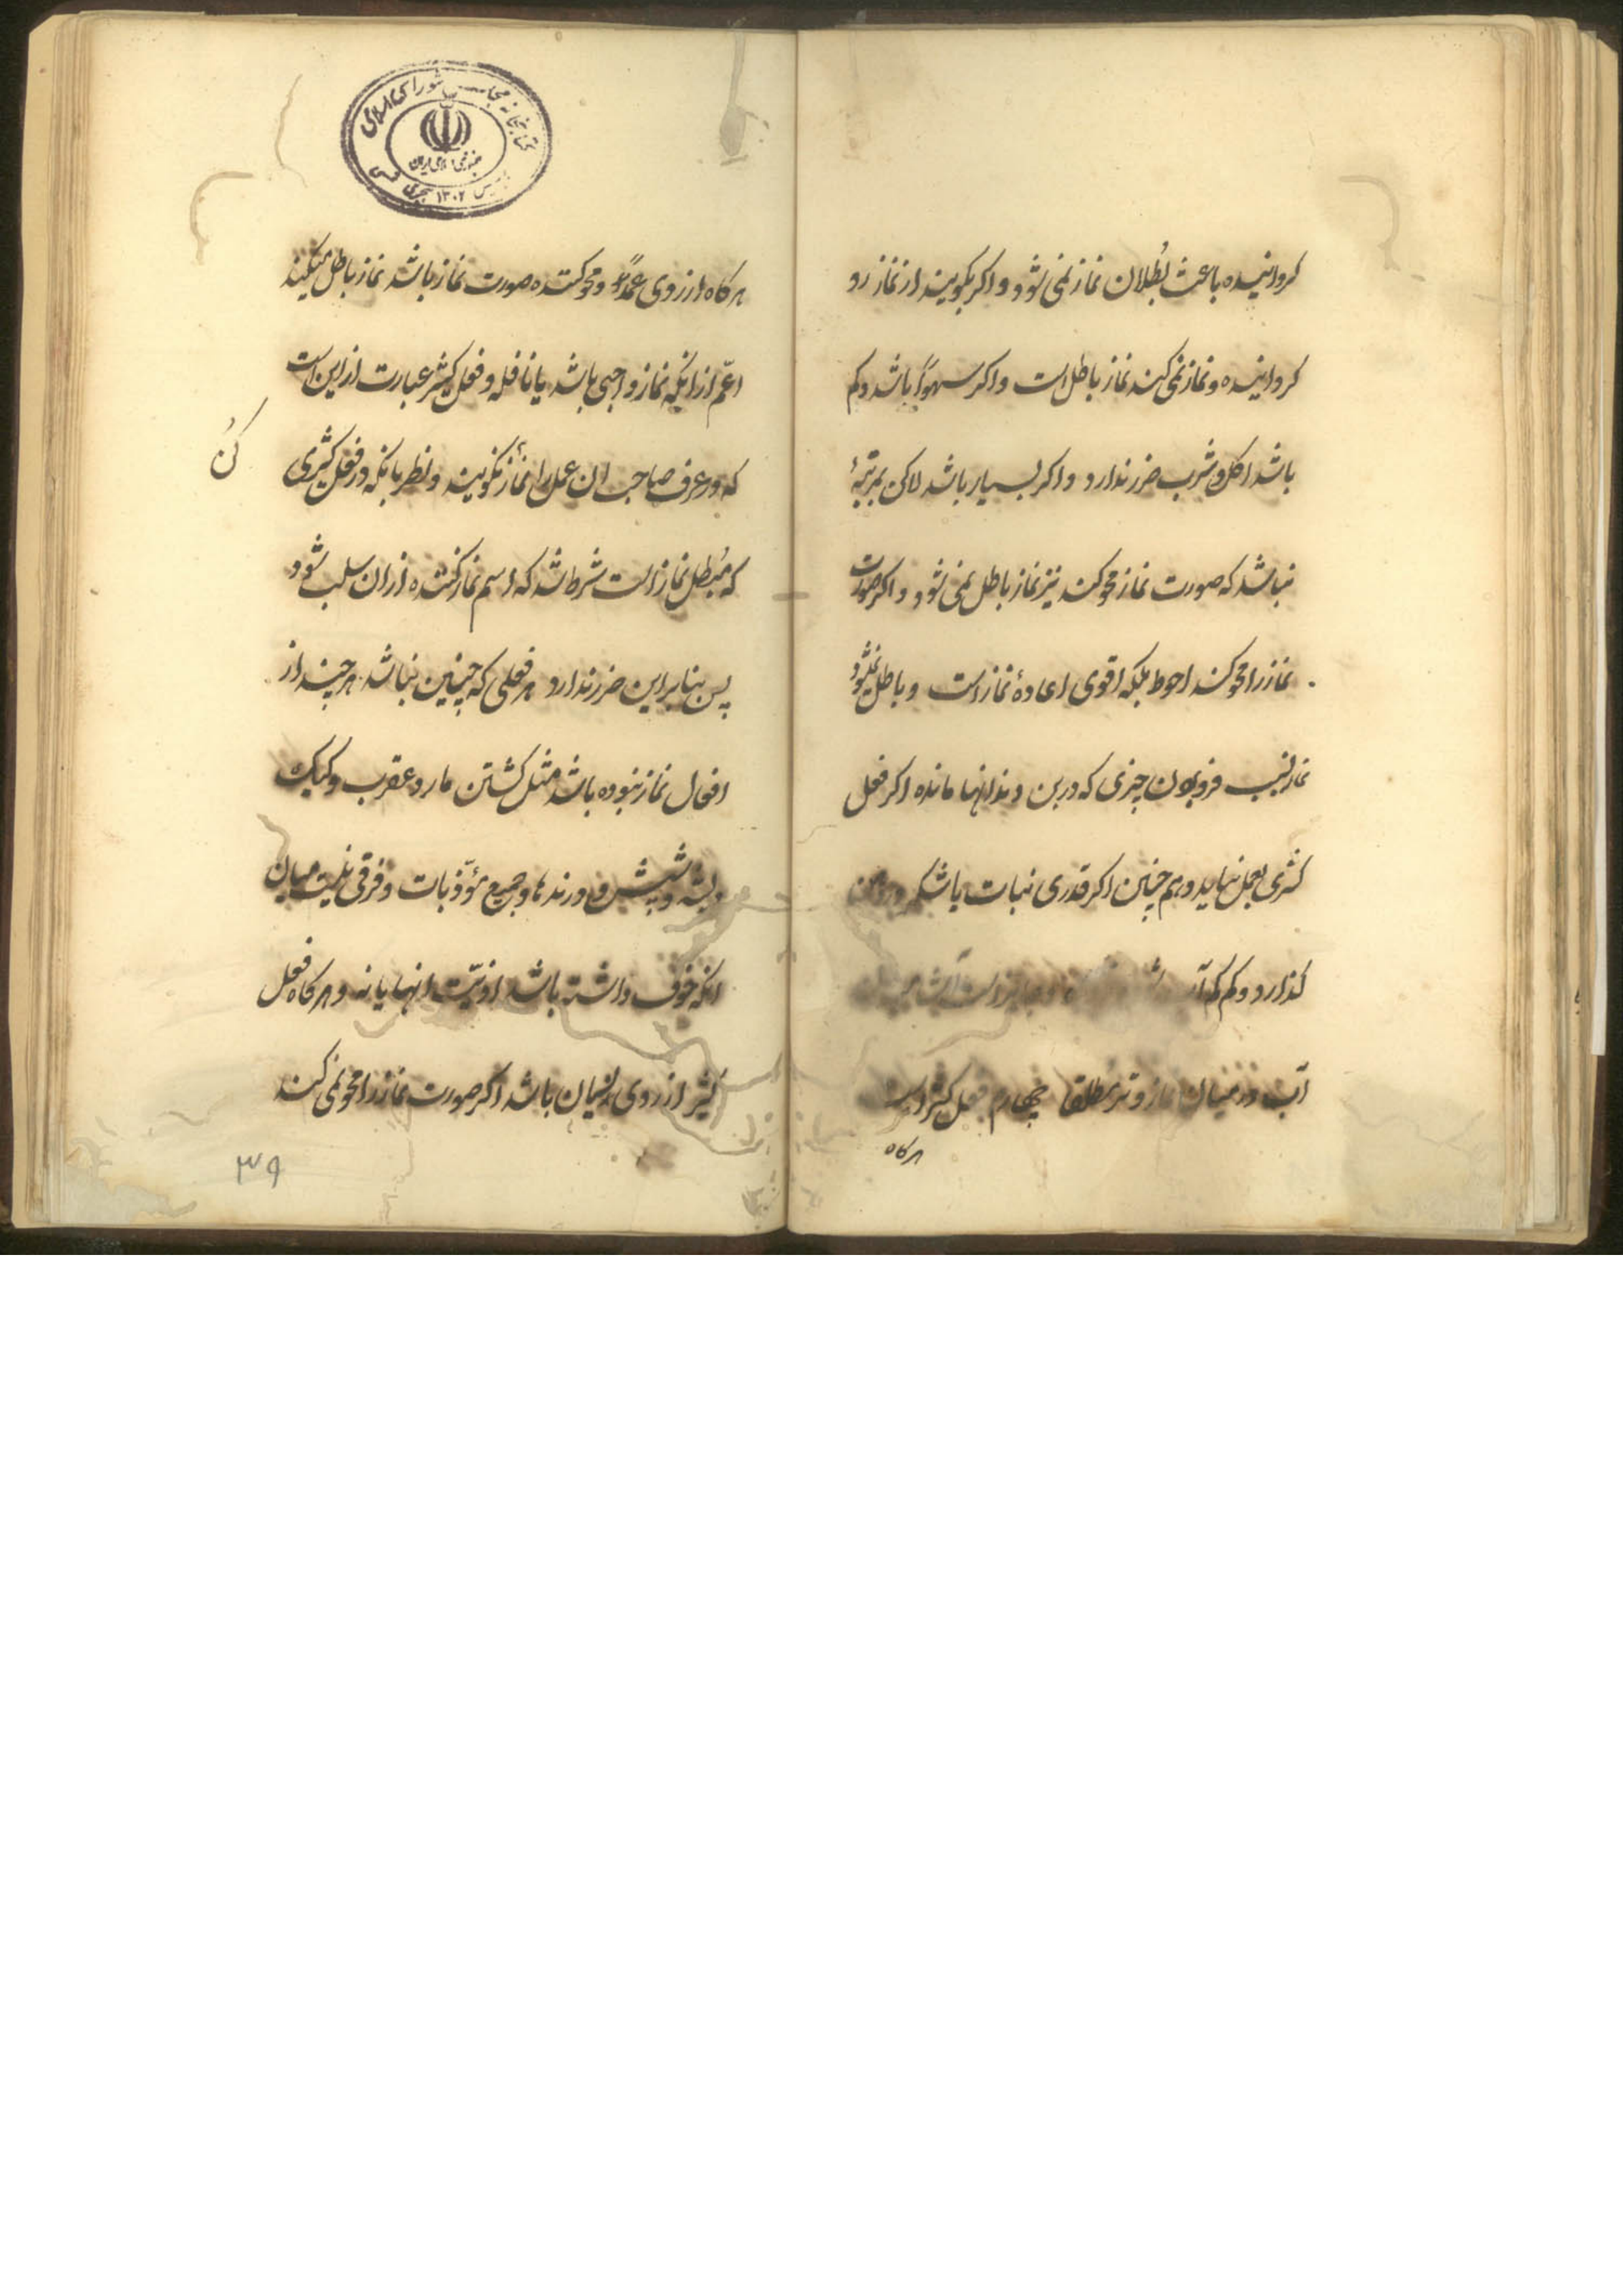 کردانیده باعث بُطلان نماز نمی شود و اکر بکویند از نماز رو
کردانیده و نماز نمی کند نماز باطل است و اکر سهواً باشد و کم
باشد اکل و شرب ضرر ندارد و اکر بسیار باشد لاکن بمرتبهٔ
نباشد که صورت نماز محو کند نیز نماز باطل نمی شود و اکر صورت
نماز را محو کند احوط بلکه اقوی اعادهٔ نماز است و باطل نمیشود
نماز بسبب فرو بردن چیزی که در بن دندانها مانده اکر فعل
کثیری بعمل نیاید و هم چنین اکر قدری نبات یا شکر در دهن
کذارد و کم کم آب
آب در میان نماز وتر مطلقا چهارم فعل کثیر است
هرکاه
کتابخانه مجلس شورای اسلامی
جمهوری اسلامی ایران
تاسیس ۱۳۰۲ هجری شمسی
هرکاه از روی عمد و محو کننده صورت نماز باشد نماز باطل میکند
اعمّ از انکه نماز واجبی باشد یا نافله و فعل کثیر عبارت از این است
که در عرف صاحب ان عمل را نماز کن نکویند و نظر بانکه در فعل کثیری
کُن
که مُبطل نماز است شرط شد که اسم نماز کننده از ان سلب شود
پس بنابراین ضرر ندارد هر فعلی که چنین نباشد هر چند از
افعال نماز نبوده باشد مثل کشتن مار و عقرب و کیک
و پشه و شپش و درندها و جمیع مؤذیات و فرقی نیست میان
انکه خوف داشته باشد اذیّت انها یا نه و هرکاه فعل
کثیر از روی نسیان باشد اکر صورت نماز را محو نمی کند
۳۹